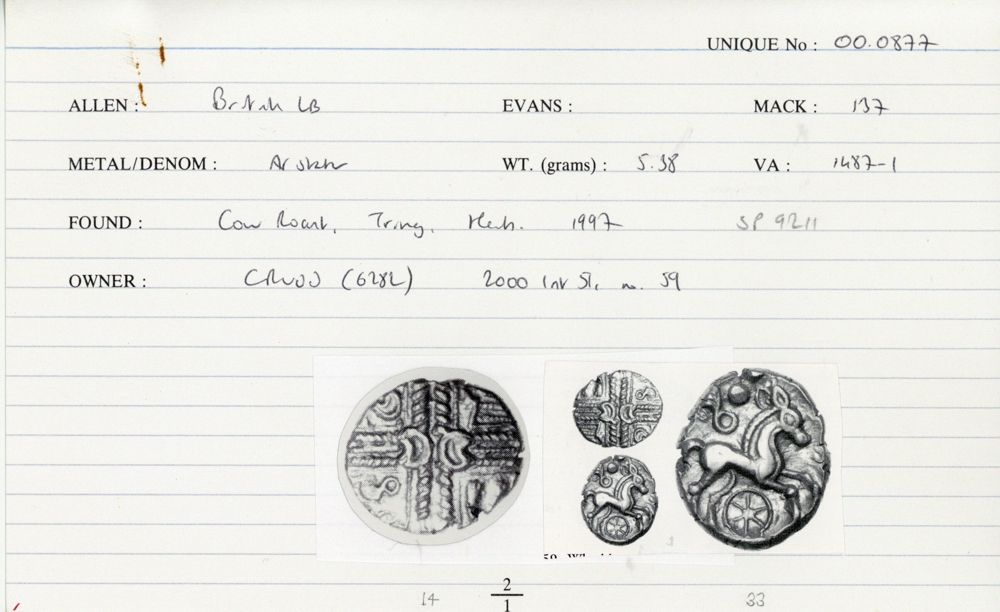 UNIQUE No : 00.0877
ALLEN : British LB EVANS : MACK : 137
METAL/DENOM : AV stater WT. (grams) : 5.38 VA : 1487-1
FOUND : Cow Roast, Tring, Herts. 1997 SP 9211
OWNER : (6282) 2000 no. 59
14 2/1 33